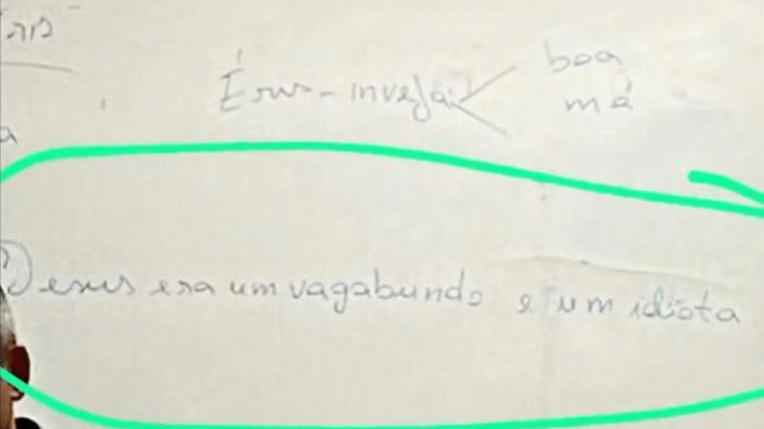 Éris - inveja
boa
má
Jesus era um vagabundo e um idiota